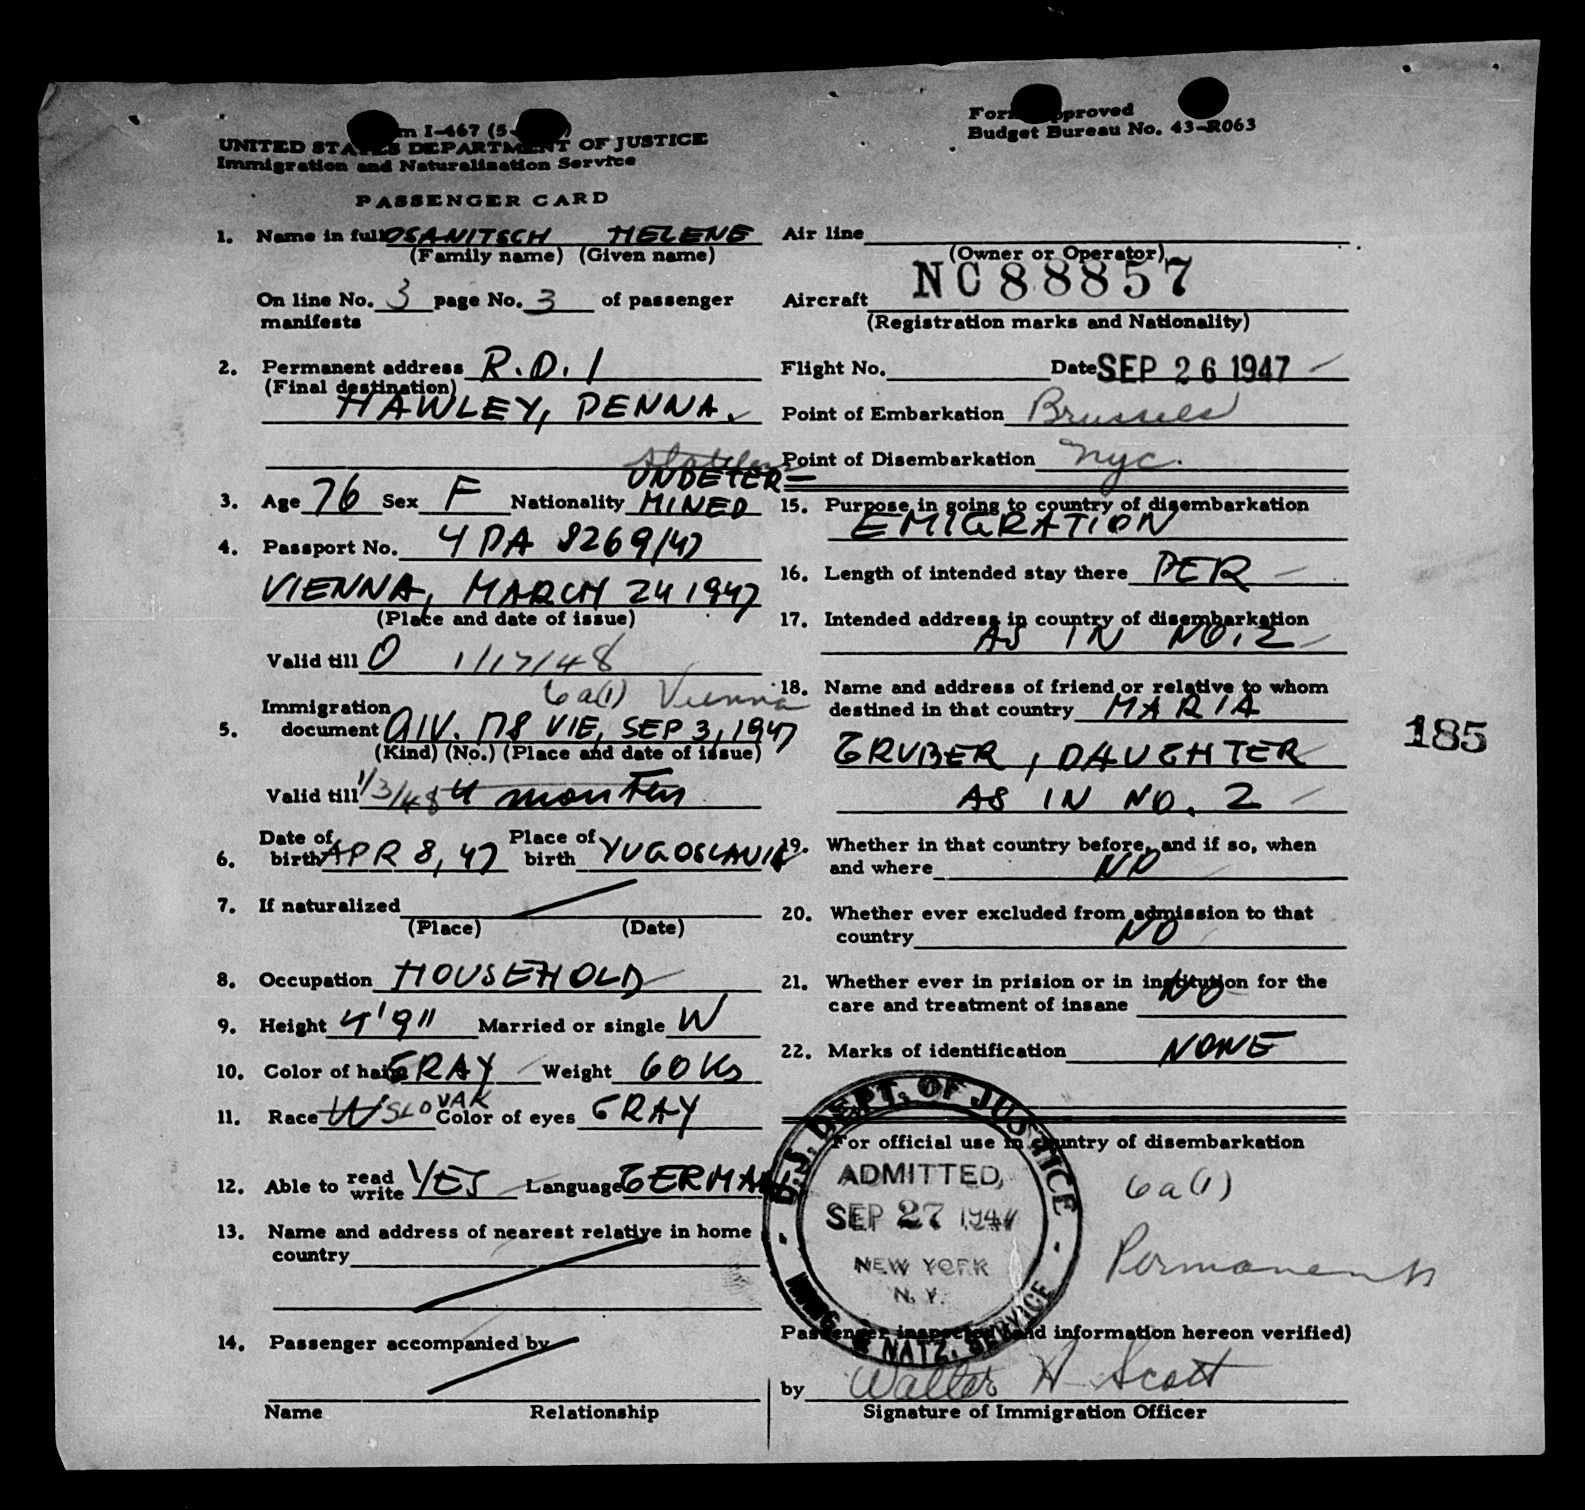 m I-467 (5-
UNITED STATES DEPARTMENT OF JUSTICE
Immigration and Naturalization Service
PASSENGER CARD
Form Approved
Budget Bureau No. 43-R063
1. Name in full OSANITSCH HELENE
(Family name) (Given name)
On line No. 3 page No. 3 of passenger
manifests
2. Permanent address R.D. 1
(Final destination)
HAWLEY, PENNA.
UNDETER-
3. Age 76 Sex F Nationality MINED
4. Passport No. 4 PA 8269/47
VIENNA, MARCH 24 1947
(Place and date of issue)
Valid till 0 1/17/48
6a(1) Vienna
Immigration
5. document QIV. 178 VIE, SEP 3, 1947
(Kind) (No.) (Place and date of issue)
Valid till 1/3/48 4 months
6. Date of birth APR 8, 47 Place of birth YUGOSLAVIA
7. If naturalized
(Place) (Date)
8. Occupation HOUSEHOLD
9. Height 4'9" Married or single W
10. Color of hair GRAY Weight 60 Ks
11. Race W SLOVAK Color of eyes GRAY
12. Able to read write YES Language GERMAN
13. Name and address of nearest relative in home
country
14. Passenger accompanied by
Name Relationship
Air line
(Owner or Operator)
Aircraft NC88857
(Registration marks and Nationality)
Flight No. Date SEP 26 1947
Point of Embarkation Brussels
Point of Disembarkation nyc.
15. Purpose in going to country of disembarkation
EMIGRATION
16. Length of intended stay there PER
17. Intended address in country of disembarkation
AS IN NO. 2
18. Name and address of friend or relative to whom
destined in that country MARIA
GRUBER, DAUGHTER
AS IN NO. 2
19. Whether in that country before, and if so, when
and where NO
20. Whether ever excluded from admission to that
country NO
21. Whether ever in prision or in institution for the
care and treatment of insane NO
22. Marks of identification NONE
For official use in country of disembarkation
U.S. DEPT. OF JUSTICE
ADMITTED,
SEP 27 1947
NEW YORK
N.Y.
IMMG. & NATZ. SERVICE
6a(1)
Permanent
Passenger inspected (and information hereon verified)
by Walter H Scott
Signature of Immigration Officer
185